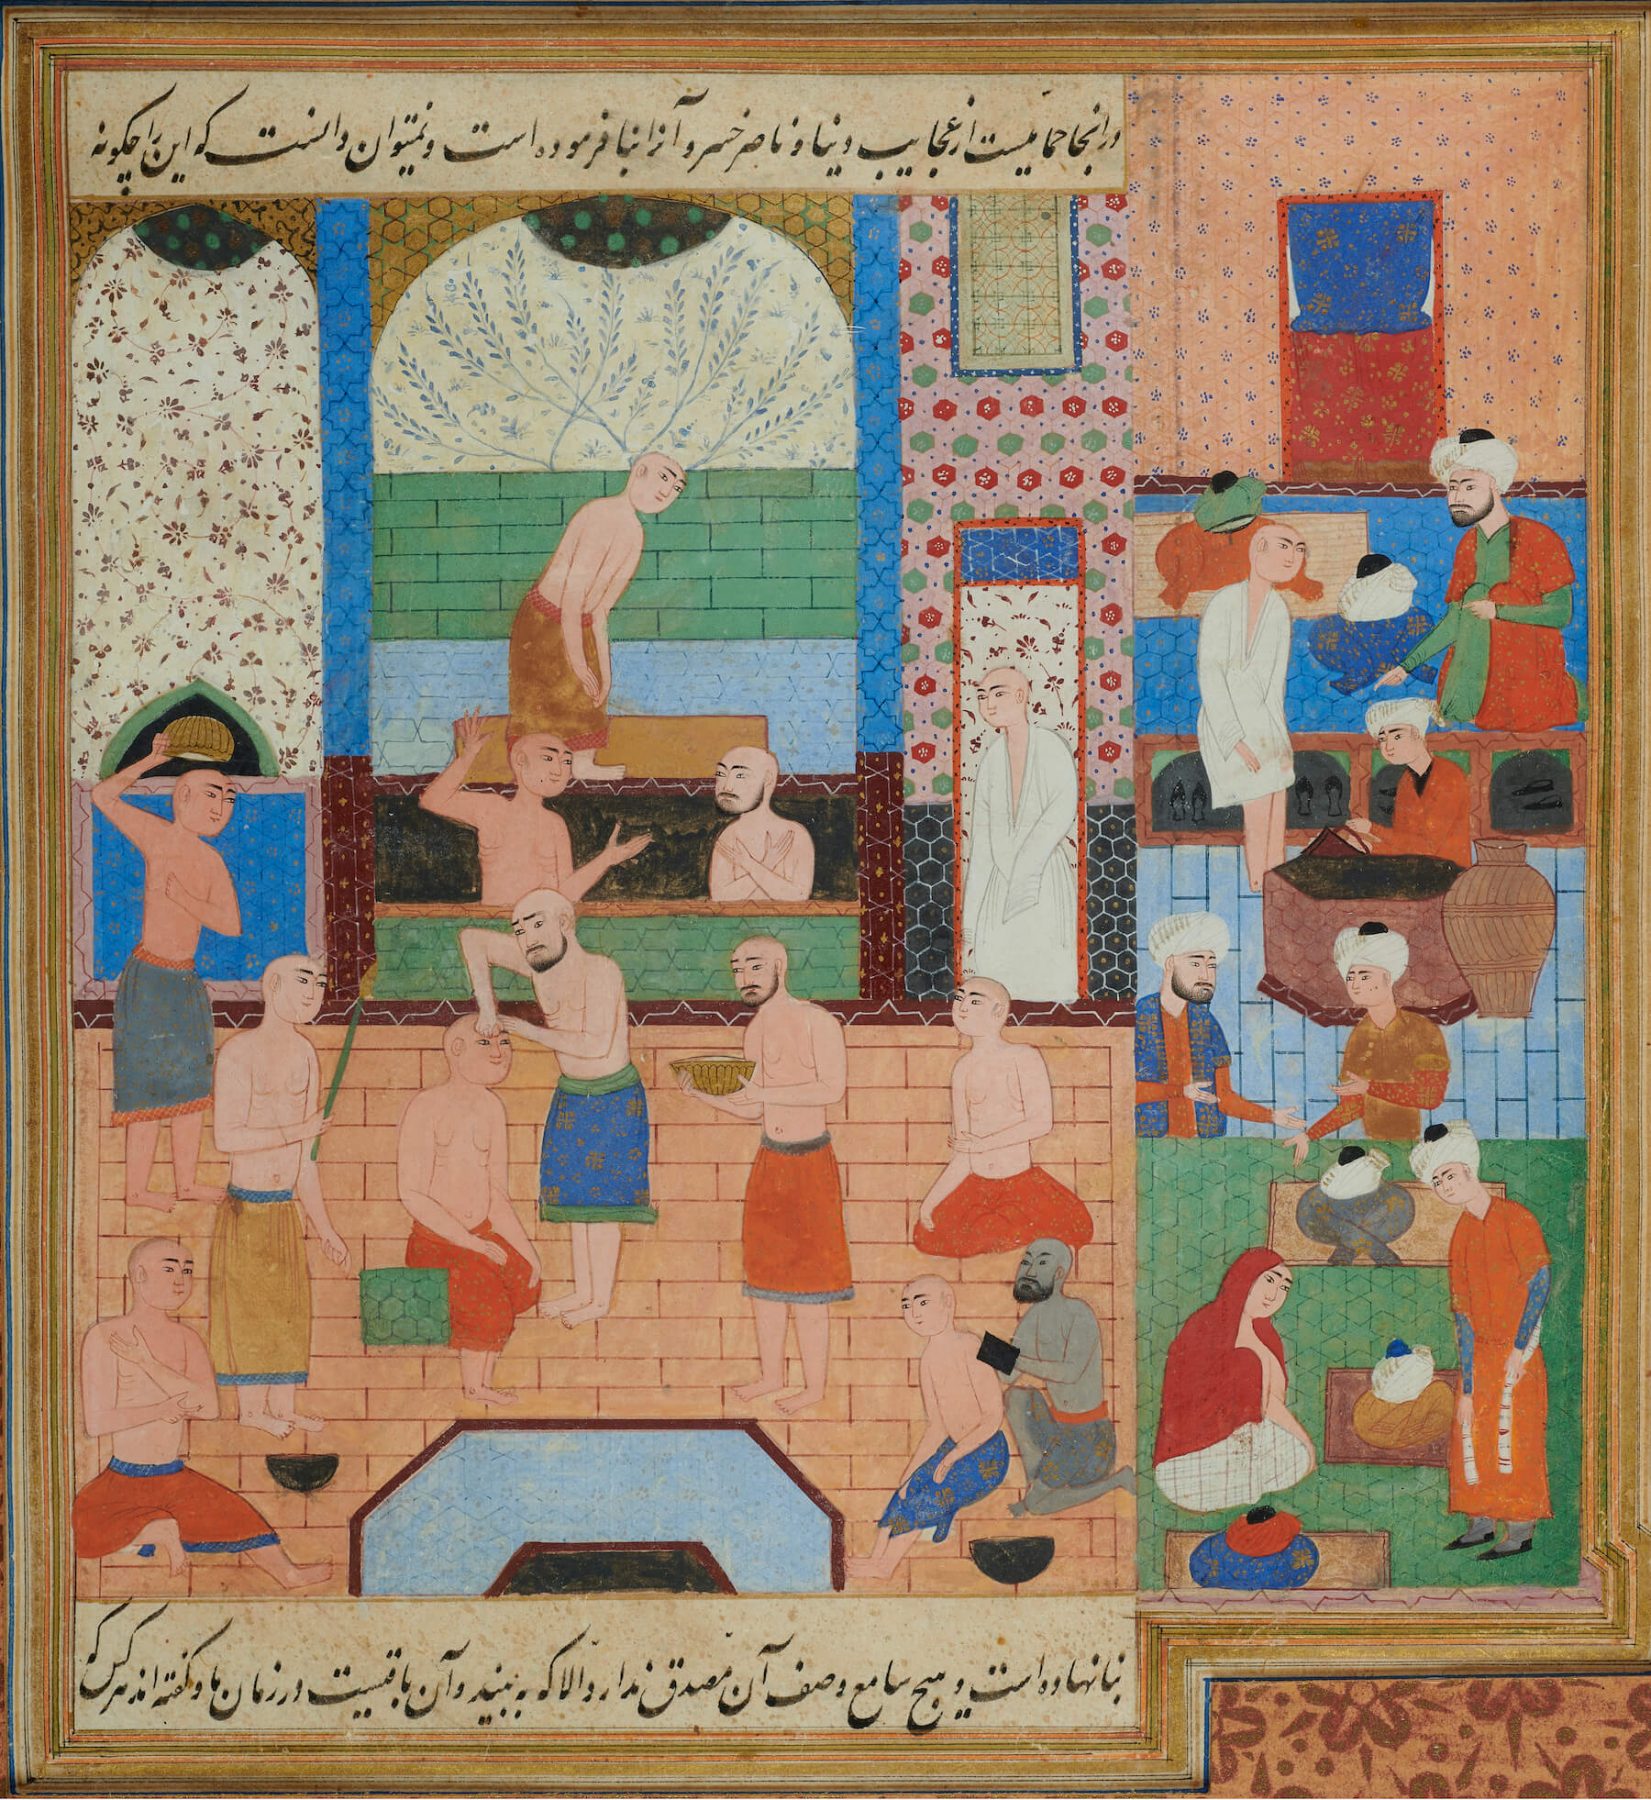 در انجا حمامیست از عجایب دنیا و ناصر خسرو آنرا بنا فرموده است و نمیتوان دانست که این را چگونه
بنا نهاده است و هیچ سامع وصف آن مصدق ندارد الا که به بیند و آن باقیست در زمان ما و گفته اند هرکس که